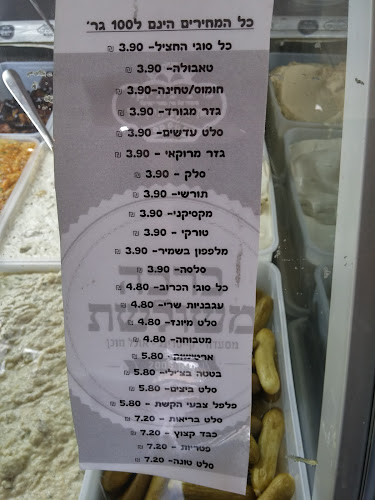 כל המחירים הינם ל100 גר'
כל סוגי החציל- 3.90 ₪
טאבולה- 3.90 ₪
חומוס/טחינה-3.90 ₪
גזר מגורד- 3.90 ₪
סלט עדשים- 3.90 ₪
גזר מרוקאי - 3.90 ₪
סלק - 3.90 ₪
תורשי- 3.90 ₪
מקסיקני- 3.90 ₪
טורקי - 3.90 ₪
מלפפון בשמיר- 3.90 ₪
סלסה- 3.90 ₪
כל סוגי הכרוב- 4.80 ₪
עגבניות שרי- 4.80 ₪
סלט מיונז- 4.80 ₪
מטבוחה- 4.80 ₪
ארטישוק- 5.80 ₪
בטטה בצ'ילי- 5.80 ₪
סלט ביצים- 5.80 ₪
פלפל צבעי הקשת - 5.80 ₪
סלט בריאות- 7.20 ₪
כבד קצוץ- 7.20 ₪
פטריות- 7.20 ₪
סלט טונה- 7.20 ₪